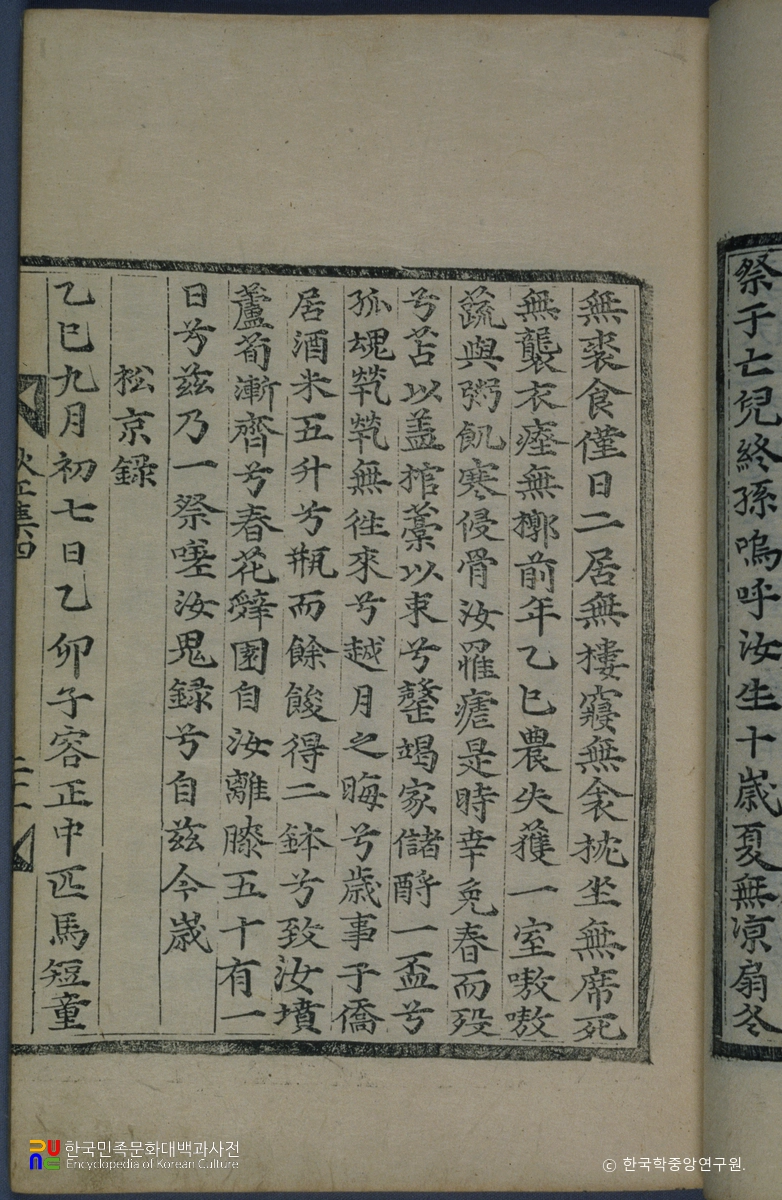 祭子亡兒終孫嗚呼汝生十歲夏無凉扇冬
無裘食僅日二居無樓寢無衾枕坐無席死
無襲衣瘞無槨前年乙巳農失穫一室嗷嗷
蔬與粥飢寒侵骨汝罹瘧是時幸免春而殁
兮苫以盖棺藁以束兮罄竭家儲酹一盃兮
孤魂煢煢無徃來兮越月之晦兮歲事子僑
居酒米五升兮甁而餘餕得二鉢兮致汝墳
蘆荀漸齊兮春花辭園自汝離膝五十有一
日兮玆乃一祭噻汝鬼録兮自玆今歲
松京錄
乙巳九月初七日乙卯子容正中匹馬短童
秋江集四
二十一
한국민족문화대백과사전
Encyclopedia of Korean Culture
© 한국학중앙연구원.